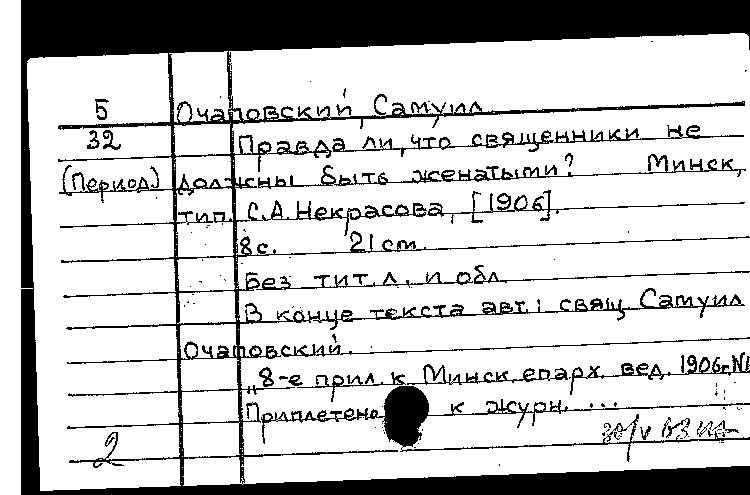 5 Очаповский, Самуил
32 Правда ли, что священники не
(Период.) должны быть женатыми? Минск,
тип. С.А.Некрасова, [1906].
8 с. 21 cm.
Без тит.л. и обл
В конце текста авт.: свящ Самуил
Очаповский.
„8-е прил. к Минск.епарх. вед. 1906г.№
Приплетено к журн. ...
2 30/V